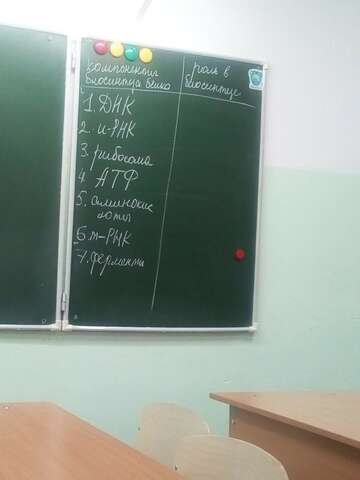 компоненты
биосинтеза белка
роль в
биосинтезе
1. ДНК
2. и-РНК
3. рибосома
4 АТФ
5. аминокис
лоты
6. т-РНК
7. ферменты